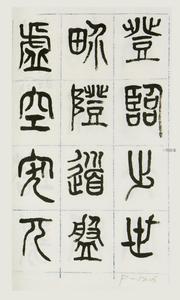 登臨出世
畍隥道盤
虛空突兀